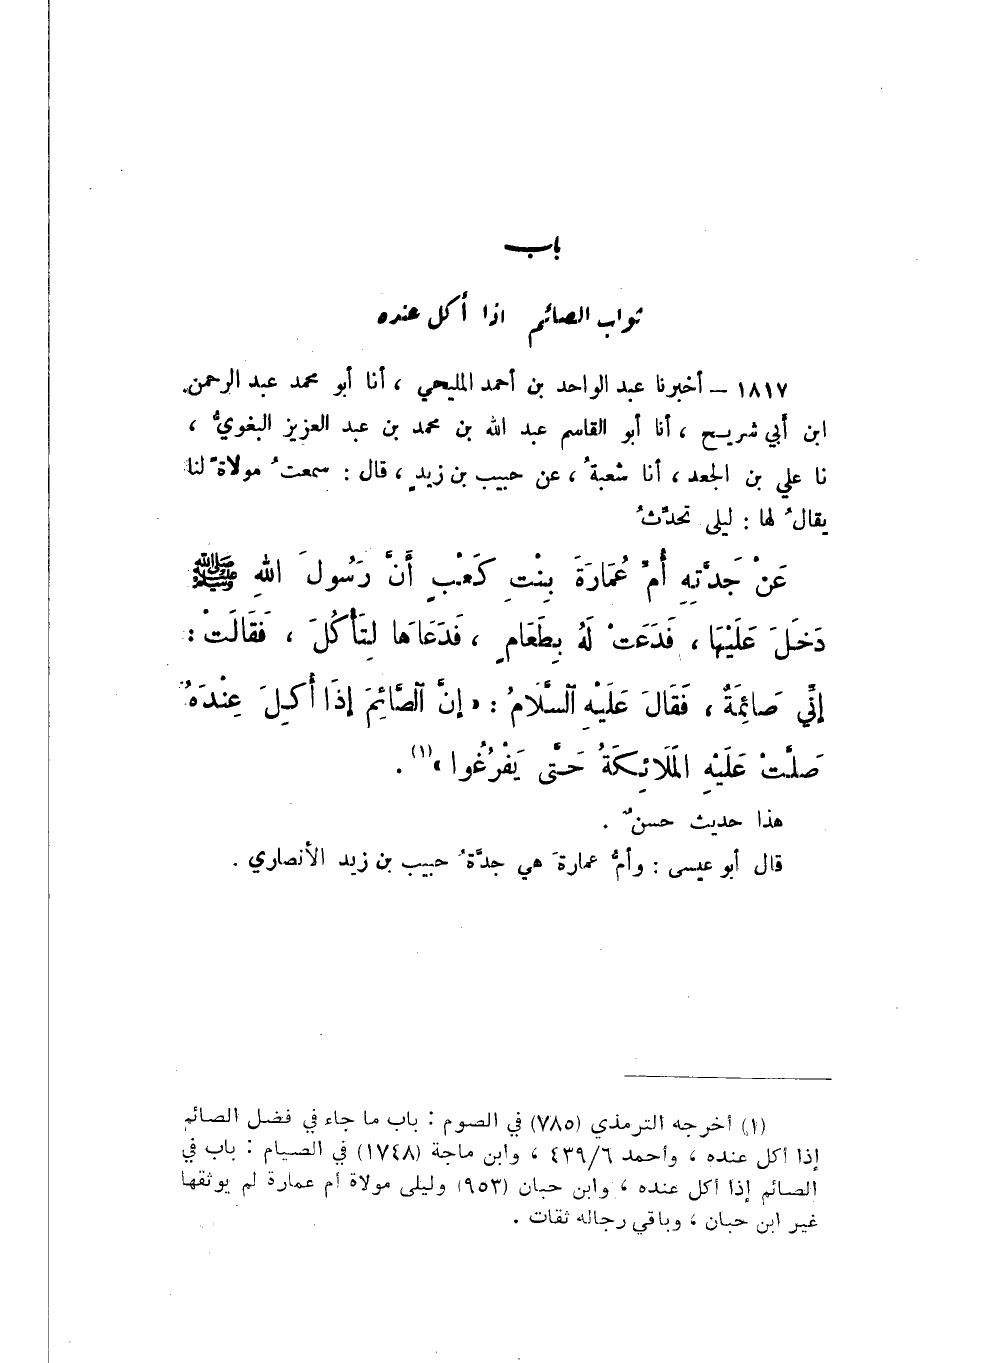 باب
ثواب الصائم اذا أكل عنده
١٨١٧ – أخبرنا عبد الواحد بن أحمد المليحي ، أنا أبو محمد عبد الرحمن
ابن أبي شريح ، أنا أبو القاسم عبد الله بن محمد بن عبد العزيز البغويُّ ،
نا علي بن الجعد ، أنا شعبةُ ، عن حبيب بن زيدٍ ، قال : سمعتُ مولاةً لنا
يقالُ لها : ليلى تحدِّثُ
عَنْ جَدَّتِهِ أُمِّ عُمَارَةَ بِنْتِ كَعْبٍ أَنَّ رَسُولَ اللهِ ﷺ
دَخَلَ عَلَيْهَا ، فَدَعَتْ لَهُ بِطَعَامٍ ، فَدَعَاهَا لِتَأْكُلَ ، فَقَالَتْ :
إِنِّي صَائِمَةٌ ، فَقَالَ عَلَيْهِ السَّلَامُ : « إِنَّ الصَّائِمَ إِذَا أُكِلَ عِنْدَهُ
صَلَّتْ عَلَيْهِ المَلَائِكَةُ حَتَّى يَفْرُغُوا »(١) .
هذا حديث حسنٌ .
قال أبو عيسى : وأمُّ عمارةَ هي جدَّةُ حبيب بن زيد الأنصاري .
(١) أخرجه الترمذي (٧٨٥) في الصوم : باب ما جاء في فضل الصائم
إذا أكل عنده ، وأحمد ٤٣٩/٦ ، وابن ماجة (١٧٤٨) في الصيام : باب في
الصائم إذا أكل عنده ، وابن حبان (٩٥٣) وليلى مولاة أم عمارة لم يوثقها
غير ابن حبان ، وباقي رجاله ثقات .